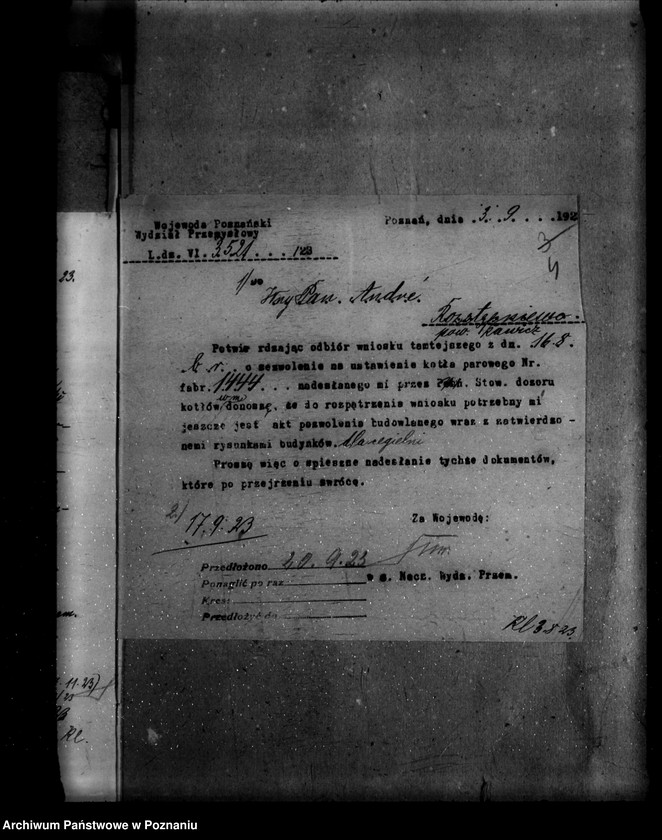 Wojewoda Poznański
Wydział Przemysłowy
L.dz. VI. 3521 . . . /23
Poznań, dnia . 3. 9. . . . 192
1/ Do
Pan. André.
Rozstępniewo.
pow. Rawicz
Potwierdzając odbiór wniosku tamtejszego z dn. 16.8.
b. r. o zezwolenie na ustawienie kotła parowego Nr.
fabr. 1444 . . . nadesłanego mi przez Stow. dozoru
kotłów donoszę, że do rozpatrzenia wniosku potrzebny mi
jeszcze jest akt pozwolenia budowlanego wraz z zatwierdzo-
nemi rysunkami budynków. dla cegielni
Proszę więc o spieszne nadesłanie tychże dokumentów,
które po przejrzeniu zwrócę.
2/ 17.9.23
Za Wojewodę:
Przedłożono 20.9.23
Ponaglić po raz
w z. Nacz. Wydz. Przem.
Kres:
Przedłożyć dn.
Kl 3 8 23
83.
11.23)
Kl.
Archiwum Państwowe w Poznaniu